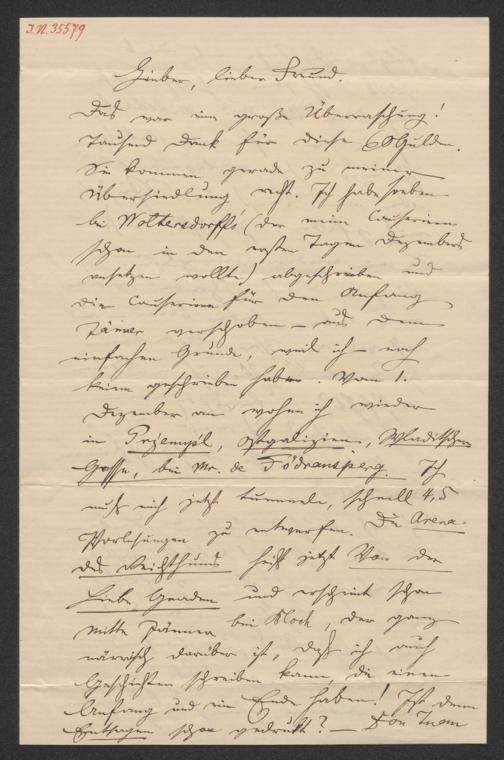 J.N. 35579
Lieber, lieber Freund.
Das war eine große Überraschung!
Tausend Dank für diese 60 Gulden.
Sie kommen gerade zu meiner
Übersiedlung recht. Ich habe soeben
bei Woltersdorff's (der meine Causerieen
schon in den ersten Tagen Dezembers
ansetzen wollte) abgeschrieben und
die Causerieen für den Anfang
Jänner verschoben – aus dem
einfachen Grunde, weil ich – noch
keine geschrieben habe. Vom 1.
Dezember an wohne ich wieder
in Przemysl, Ostgalizien, Wladitschen
Gasse, bei Mr. de Födransperg. Ich
muß mich jetzt tummeln, schnell 4, 5
Vorlesungen zu entwerfen. Die Arena
des Reichthums heißt jetzt Von der
Liebe Gnaden und erscheint schon
Mitte Jänner bei Bloch, der ganz
närrisch darüber ist, daß ich auch
Geschichten schreiben kann, die einen
Anfang und ein Ende haben! Ist denn
Entsagen schon gedruckt? – Don Juan